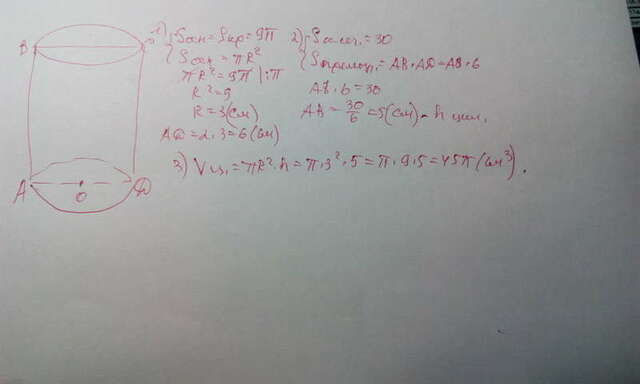 1) { Sосн = Sкр = 9π
Sосн = πR²
πR² = 9π |:π
R² = 9
R = 3 (см)
AD = 2·3 = 6 (см)
2) { Sсеч. = 30
Sпрямоуг. = AB·AD = AB·6
AB·6 = 30
AB = 30/6 = 5 (см) - h цил.
3) Vц. = πR²·h = π·3²·5 = π·9·5 = 45π (см³).
B
A
O
D